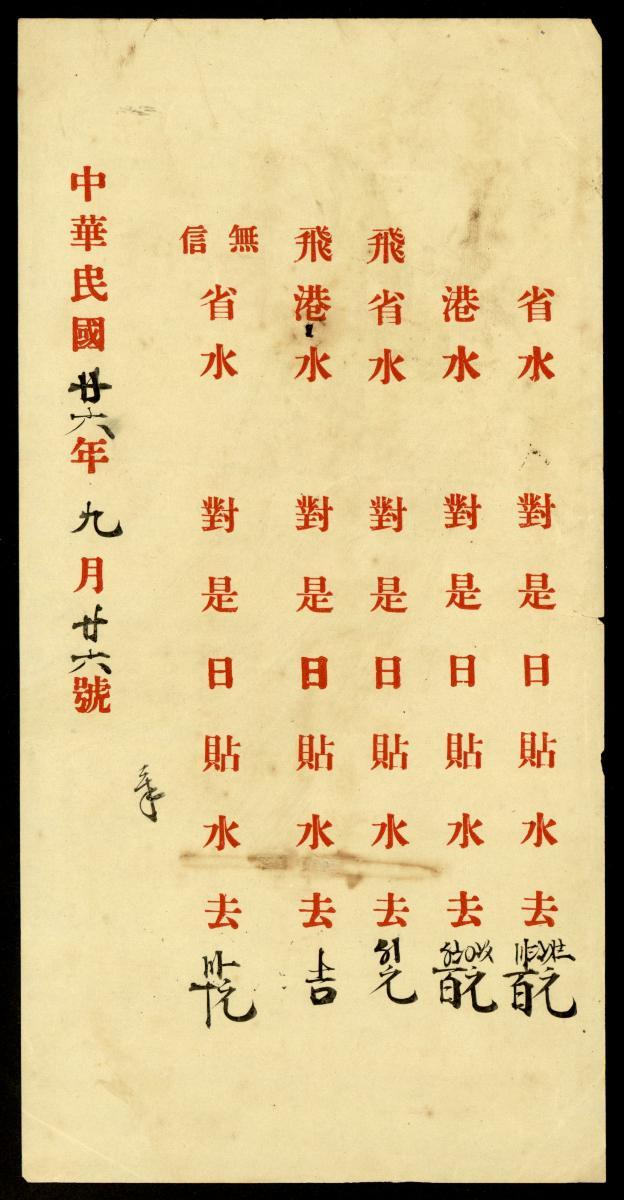 省水 對是日貼水去 百元
港水 對是日貼水去 百元
飛省水 對是日貼水去 元
飛港水 對是日貼水去吉
無信省水 對是日貼水去
中華民國廿六年九月廿六號